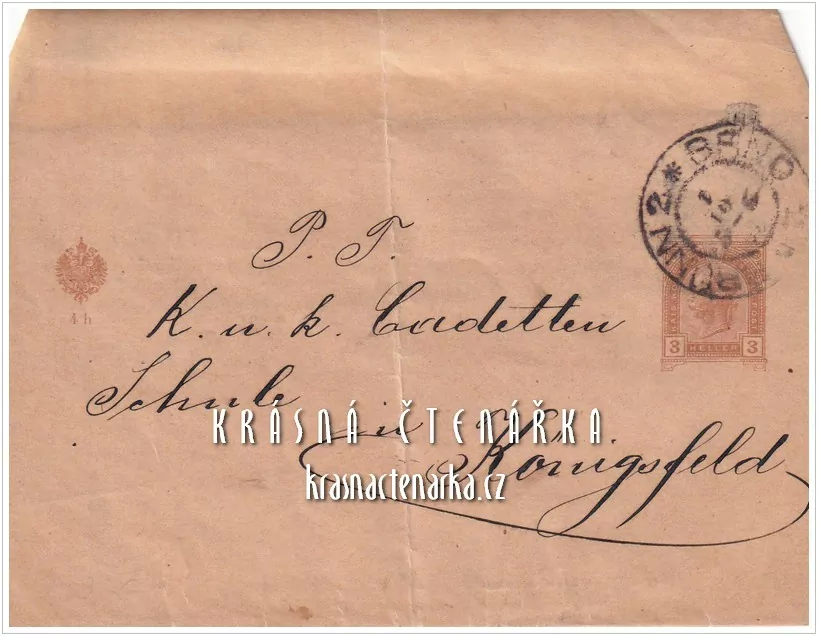 BRÜNN 2 * BRNO
P. T.
4 h
K. u. k. Cadetten
3 HELLER 3
Schule
KRÁSNÁ ČTENÁŘKA
in Königsfeld
krasnactenarka.cz